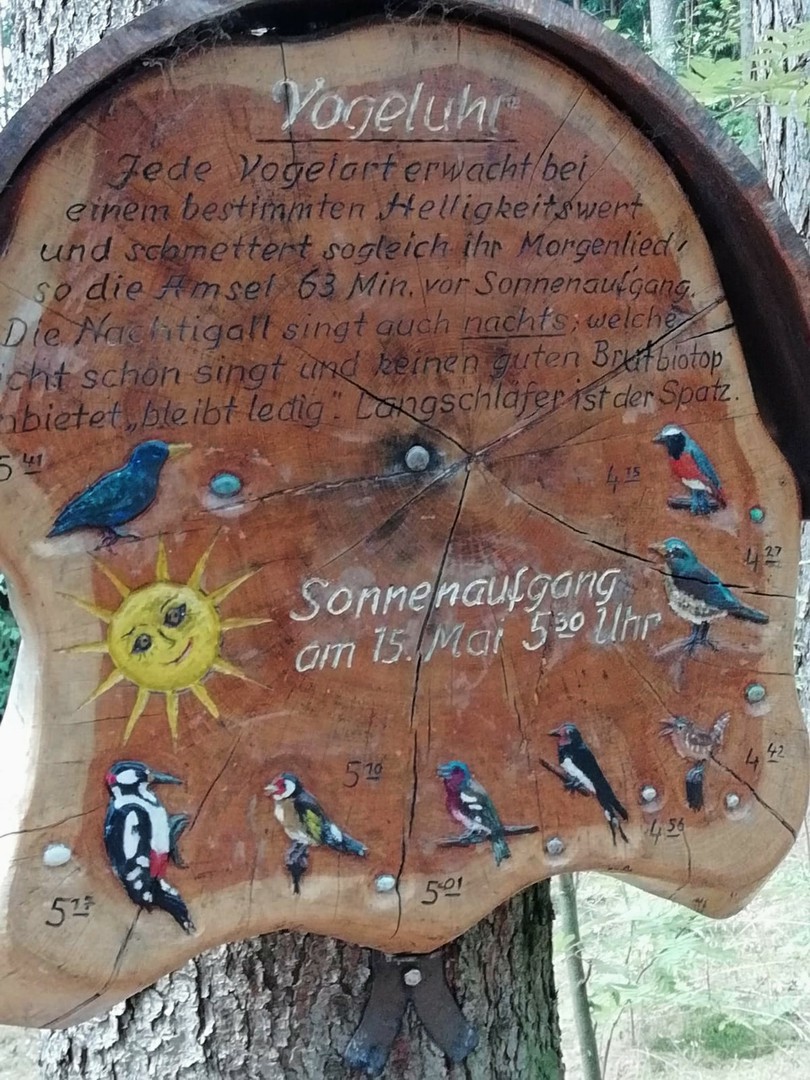 Vogeluhr
Jede Vogelart erwacht bei
einem bestimmten Helligkeitswert
und schmettert sogleich ihr Morgenlied,
so die Amsel 63 Min. vor Sonnenaufgang.
Die Nachtigall singt auch nachts; welche
icht schön singt und keinen guten Brutbiotop
nbietet „bleibt ledig". Langschläfer ist der Spatz.
5 41
4 15
4 27
Sonnenaufgang
am 15. Mai 5 30 Uhr
4 42
4 56
5 10
5 01